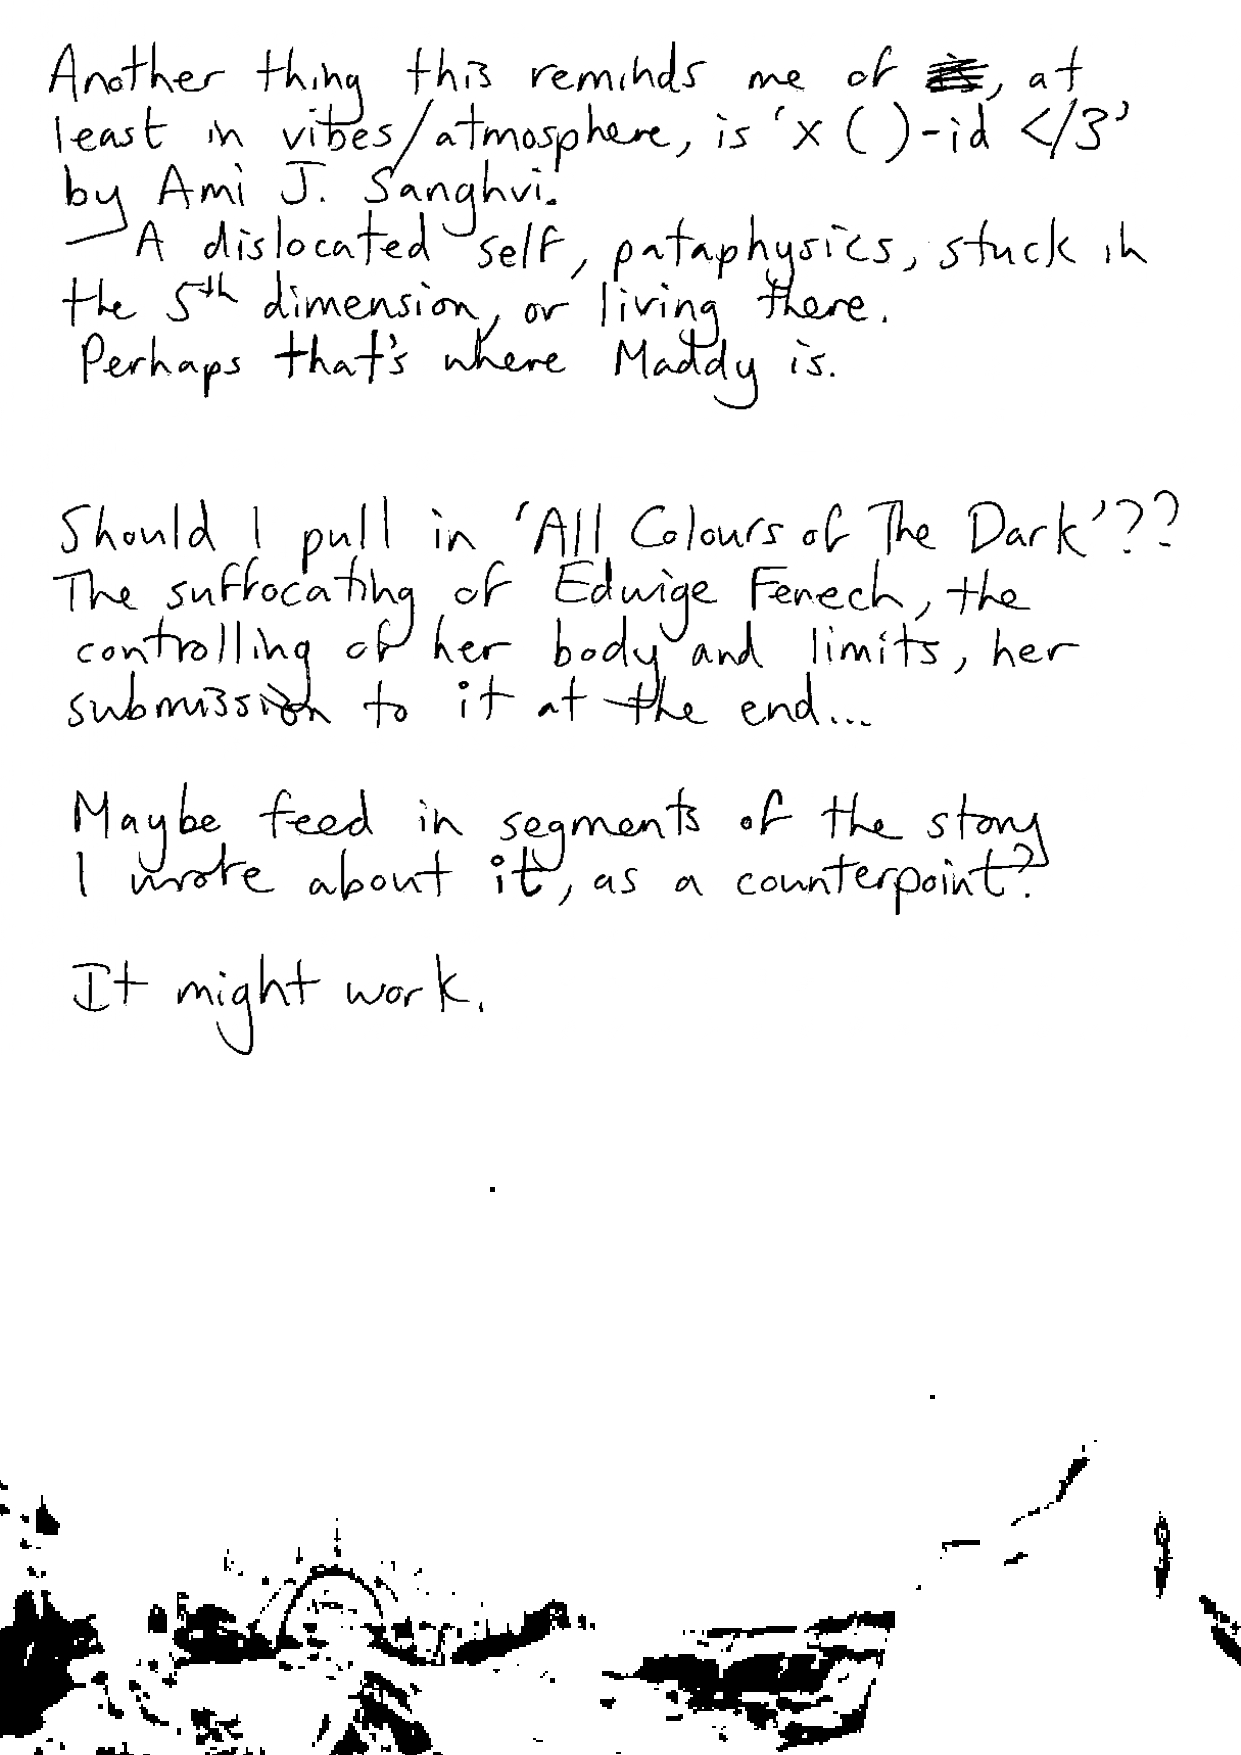 Another thing this reminds me of , at
least in vibes/atmosphere, is 'x ( )-id </3'
by Ami J. Sanghvi.
A dislocated self, pataphysics, stuck in
the 5th dimension, or living there.
Perhaps that's where Maddy is.
Should I pull in 'All Colours of The Dark'??
The suffocating of Edwige Fenech, the
controlling of her body and limits, her
submission to it at the end...
Maybe feed in segments of the story
I wrote about it, as a counterpoint?
It might work.